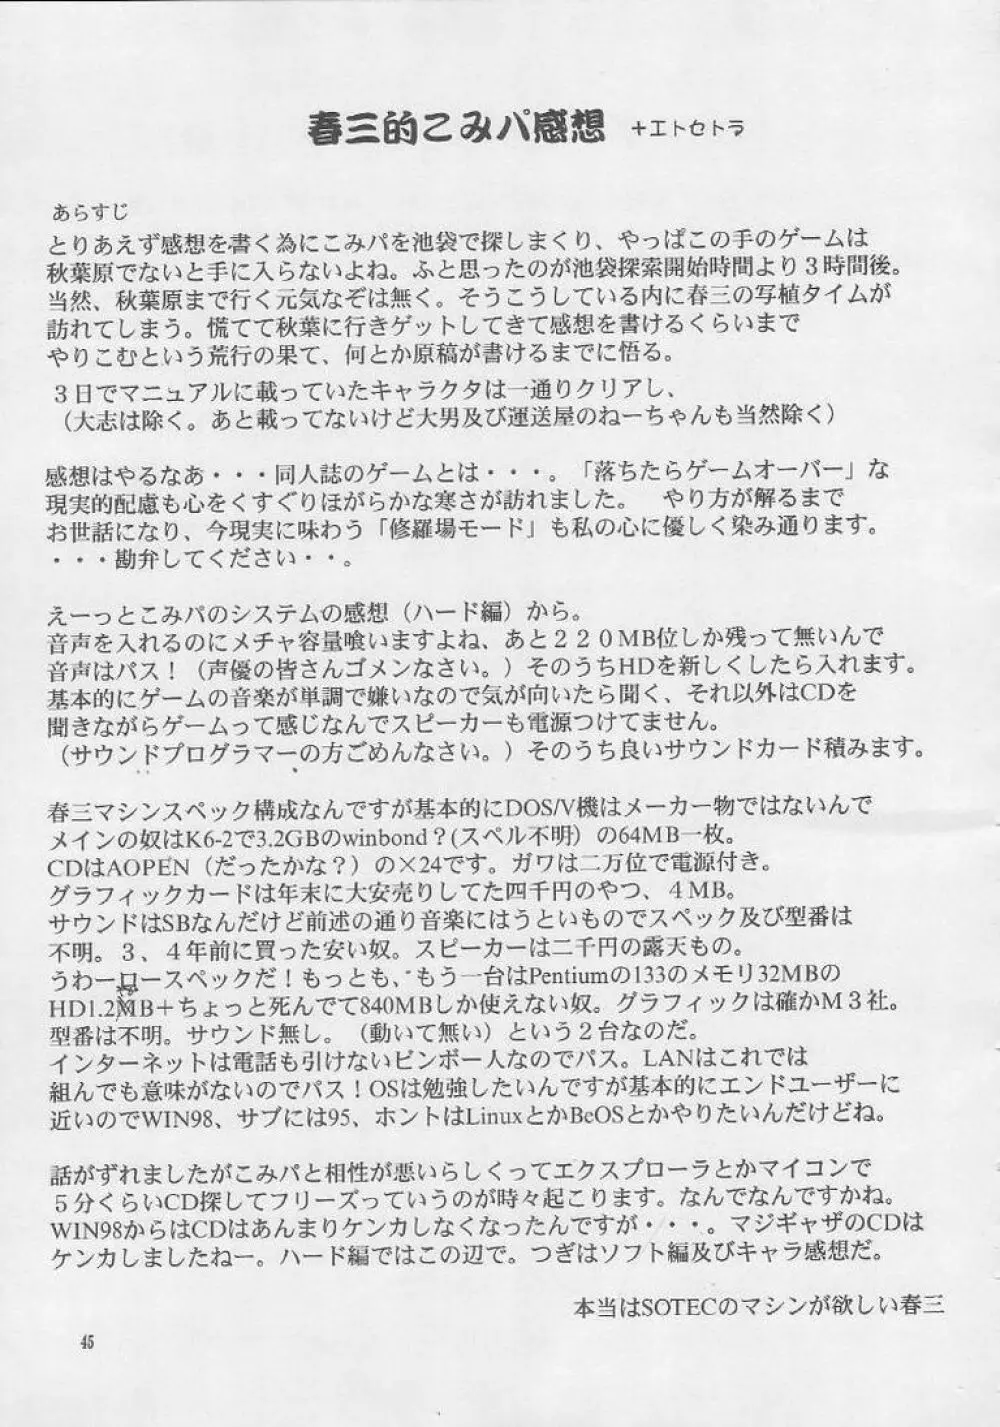 春三的こみパ感想 +エトセトラ
あらすじ
とりあえず感想を書く為にこみパを池袋で探しまくり、やっぱこの手のゲームは
秋葉原でないと手に入らないよね。ふと思ったのが池袋探索開始時間より３時間後。
当然、秋葉原まで行く元気なぞは無く。そうこうしている内に春三の写植タイムが
訪れてしまう。慌てて秋葉に行きゲットしてきて感想を書けるくらいまで
やりこむという荒行の果て、何とか原稿が書けるまでに悟る。
３日でマニュアルに載っていたキャラクタは一通りクリアし、
（大志は除く。あと載ってないけど大男及び運送屋のねーちゃんも当然除く）
感想はやるなあ・・・同人誌のゲームとは・・・。「落ちたらゲームオーバー」な
現実的配慮も心をくすぐりほがらかな寒さが訪れました。　やり方が解るまで
お世話になり、今現実に味わう「修羅場モード」も私の心に優しく染み通ります。
・・・勘弁してください・・。
えーっとこみパのシステムの感想（ハード編）から。
音声を入れるのにメチャ容量喰いますよね、あと２２０MB位しか残って無いんで
音声はパス！（声優の皆さんゴメンなさい。）そのうちHDを新しくしたら入れます。
基本的にゲームの音楽が単調で嫌いなので気が向いたら聞く、それ以外はCDを
聞きながらゲームって感じなんでスピーカーも電源つけてません。
（サウンドプログラマーの方ごめんなさい。）そのうち良いサウンドカード積みます。
春三マシンスペック構成なんですが基本的にDOS/V機はメーカー物ではないんで
メインの奴はK6-2で3.2GBのwinbond？(スペル不明）の64MB一枚。
CDはAOPEN（だったかな？）の×24です。ガワは二万位で電源付き。
グラフィックカードは年末に大安売りしてた四千円のやつ、４MB。
サウンドはSBなんだけど前述の通り音楽にはうといものでスペック及び型番は
不明。３、４年前に買った安い奴。スピーカーは二千円の露天もの。
うわーロースペックだ！もっとも、もう一台はPentiumの133のメモリ32MBの
HD1.2MB＋ちょっと死んでて840MBしか使えない奴。グラフィックは確かＭ３社。
型番は不明。サウンド無し。（動いて無い）という２台なのだ。
インターネットは電話も引けないビンボー人なのでパス。LANはこれでは
組んでも意味がないのでパス！OSは勉強したいんですが基本的にエンドユーザーに
近いのでWIN98、サブには95、ホントはLinuxとかBeOSとかやりたいんだけどね。
話がずれましたがこみパと相性が悪いらしくってエクスプローラとかマイコンで
５分くらいCD探してフリーズっていうのが時々起こります。なんでなんですかね。
WIN98からはCDはあんまりケンカしなくなったんですが・・・。マジギャザのCDは
ケンカしましたねー。ハード編ではこの辺で。つぎはソフト編及びキャラ感想だ。
本当はSOTECのマシンが欲しい春三
45